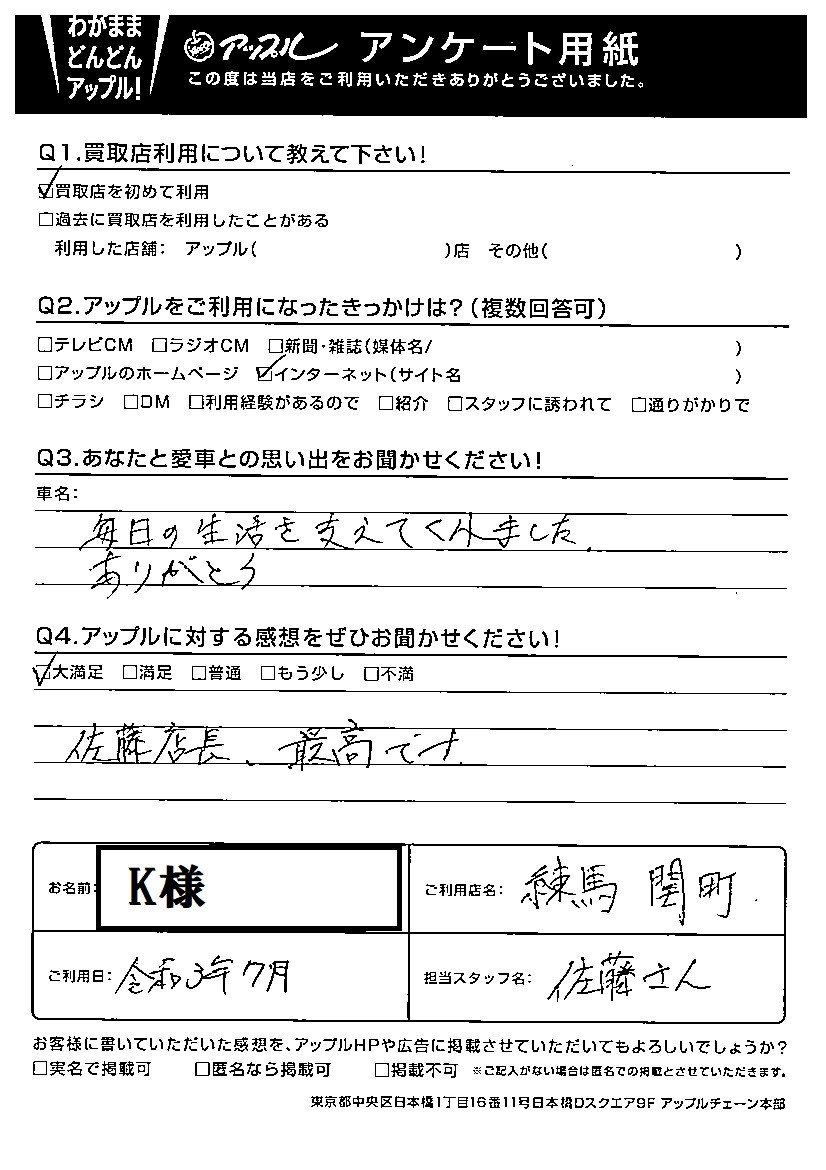 わがまま
どんどん
アップル!
アップル アンケート用紙
この度は当店をご利用いただきありがとうございました。
Q1.買取店利用について教えて下さい!
☑買取店を初めて利用
□過去に買取店を利用したことがある
利用した店舗: アップル( )店 その他( )
Q2.アップルをご利用になったきっかけは?(複数回答可)
□テレビCM □ラジオCM □新聞・雑誌(媒体名/ )
□アップルのホームページ ☑インターネット(サイト名 )
□チラシ □DM □利用経験があるので □紹介 □スタッフに誘われて □通りがかりで
Q3.あなたと愛車との思い出をお聞かせください!
車名:
毎日の生活を支えてくれました.
ありがとう
Q4.アップルに対する感想をぜひお聞かせください!
☑大満足 □満足 □普通 □もう少し □不満
佐藤店長、最高です
お名前: K様
ご利用店名: 練馬関町
ご利用日: 令和3年7月
担当スタッフ名: 佐藤さん
お客様に書いていただいた感想を、アップルHPや広告に掲載させていただいてもよろしいでしょうか?
□実名で掲載可 □匿名なら掲載可 □掲載不可 ※ご記入がない場合は匿名での掲載とさせていただきます。
東京都中央区日本橋1丁目16番11号日本橋Dスクエア9F アップルチェーン本部